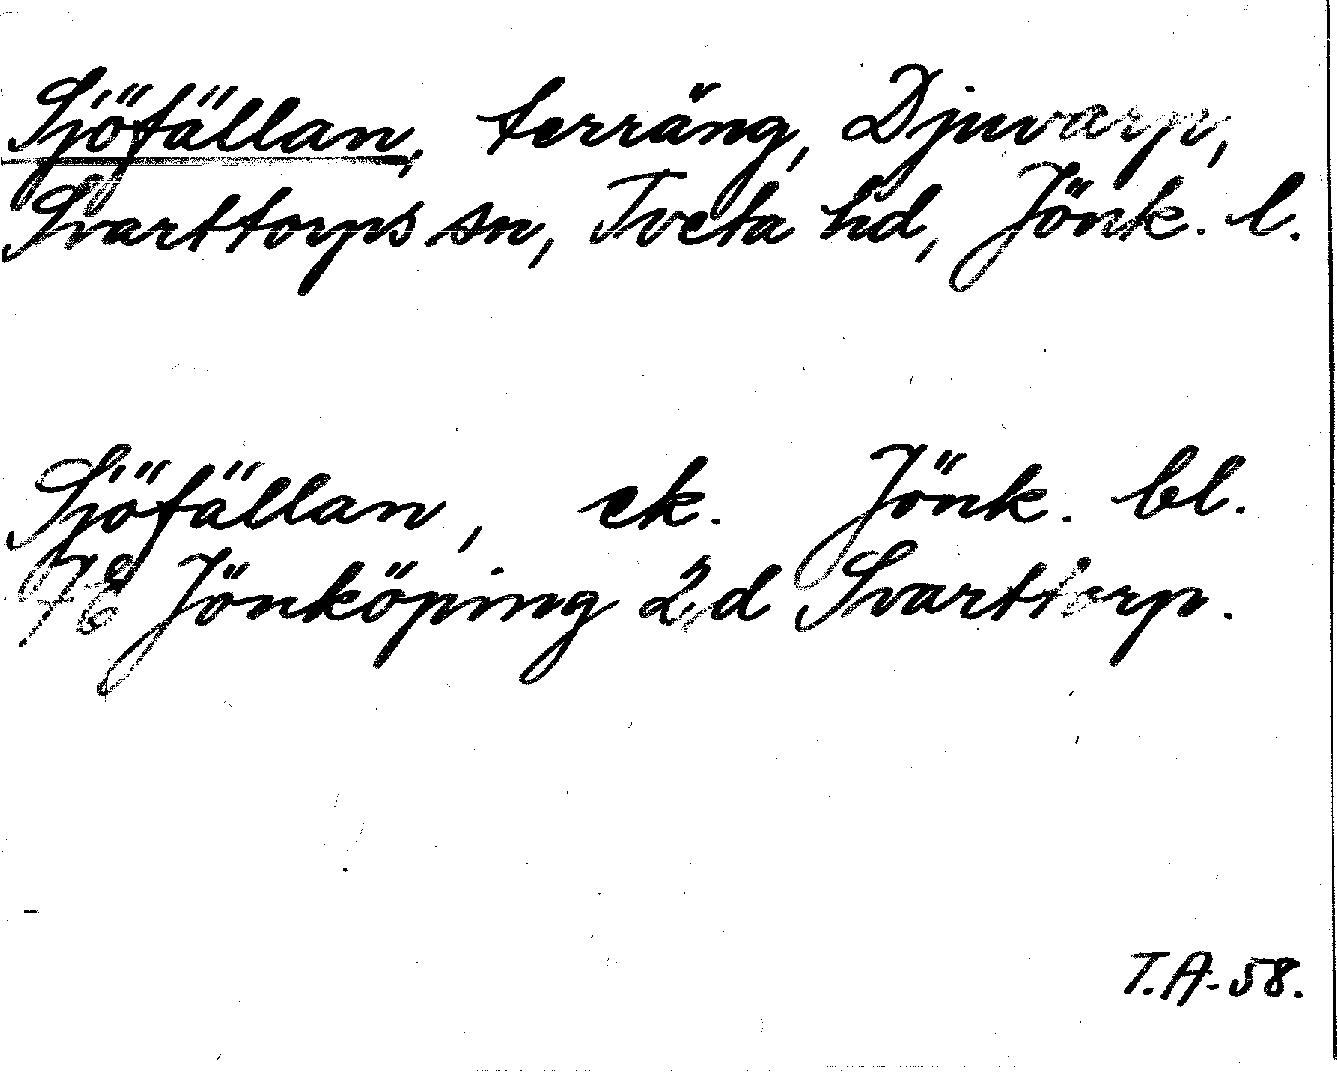 Sjöfällan, terräng, Djuvarp,
Svarttorps sn, Tveta hd, Jönk. l.
Sjöfällan, ek. Jönk. bl.
7E Jönköping 2,d Svarttorp.
T.A-58.